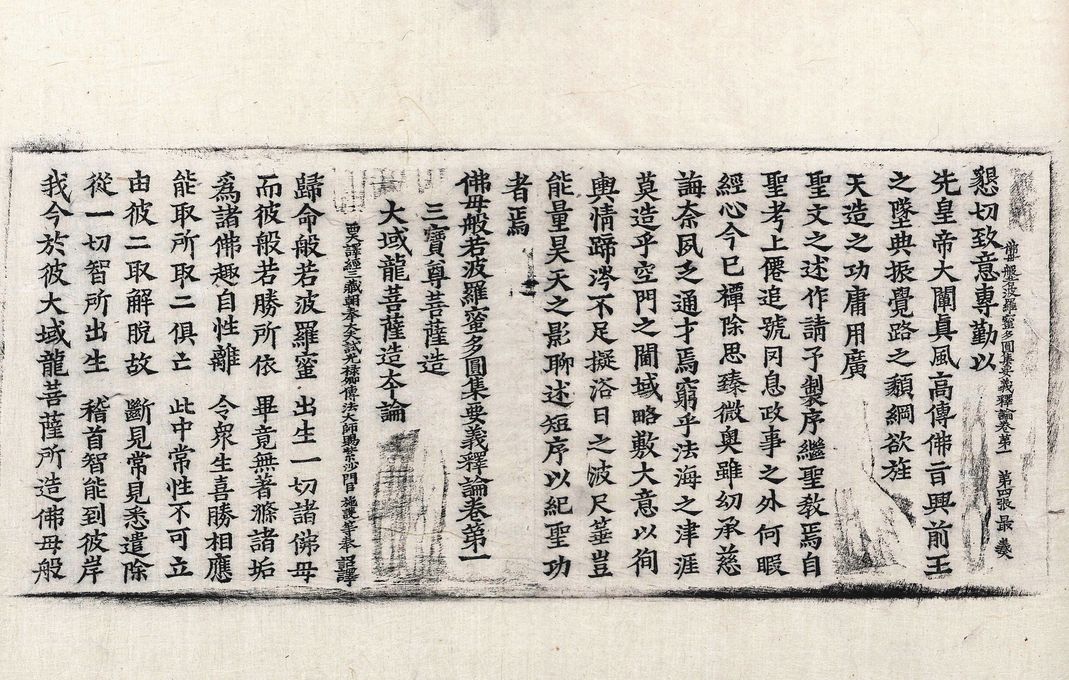 懇切致意專勤以
佛母般若波羅蜜多圓集要義釋論卷第一　第四張　最　羲
先皇帝大闡眞風高傳佛旨興前王
之墜典振覺路之頹綱欲旌
天造之功庸用廣
聖文之述作請予製序繼聖教焉自
聖考上僊追號罔息政事之外何暇
經心今已禫除思臻微奧雖幼承慈
誨奈夙乏通才焉窮乎法海之津涯
莫造乎空門之閫域略敷大意以徇
輿情蹄涔不足擬浴日之波尺箠豈
能量昊天之影聊述短序以紀聖功
者焉
佛母般若波羅蜜多圓集要義釋論卷第一
三寶尊菩薩造
大域龍菩薩造本論
西天譯經三藏朝奉大夫試光祿卿傳法大師賜紫沙門臣施護等奉　詔譯
歸命般若波羅蜜　出生一切諸佛母
而彼般若勝所依　畢竟無著滌諸垢
爲諸佛趣自性離　令衆生喜勝相應
能取所取二俱亡　此中常性不可立
由彼二取解脫故　斷見常見悉遣除
從一切智所出生　稽首智能到彼岸
我今於彼大域龍菩薩所造佛母般